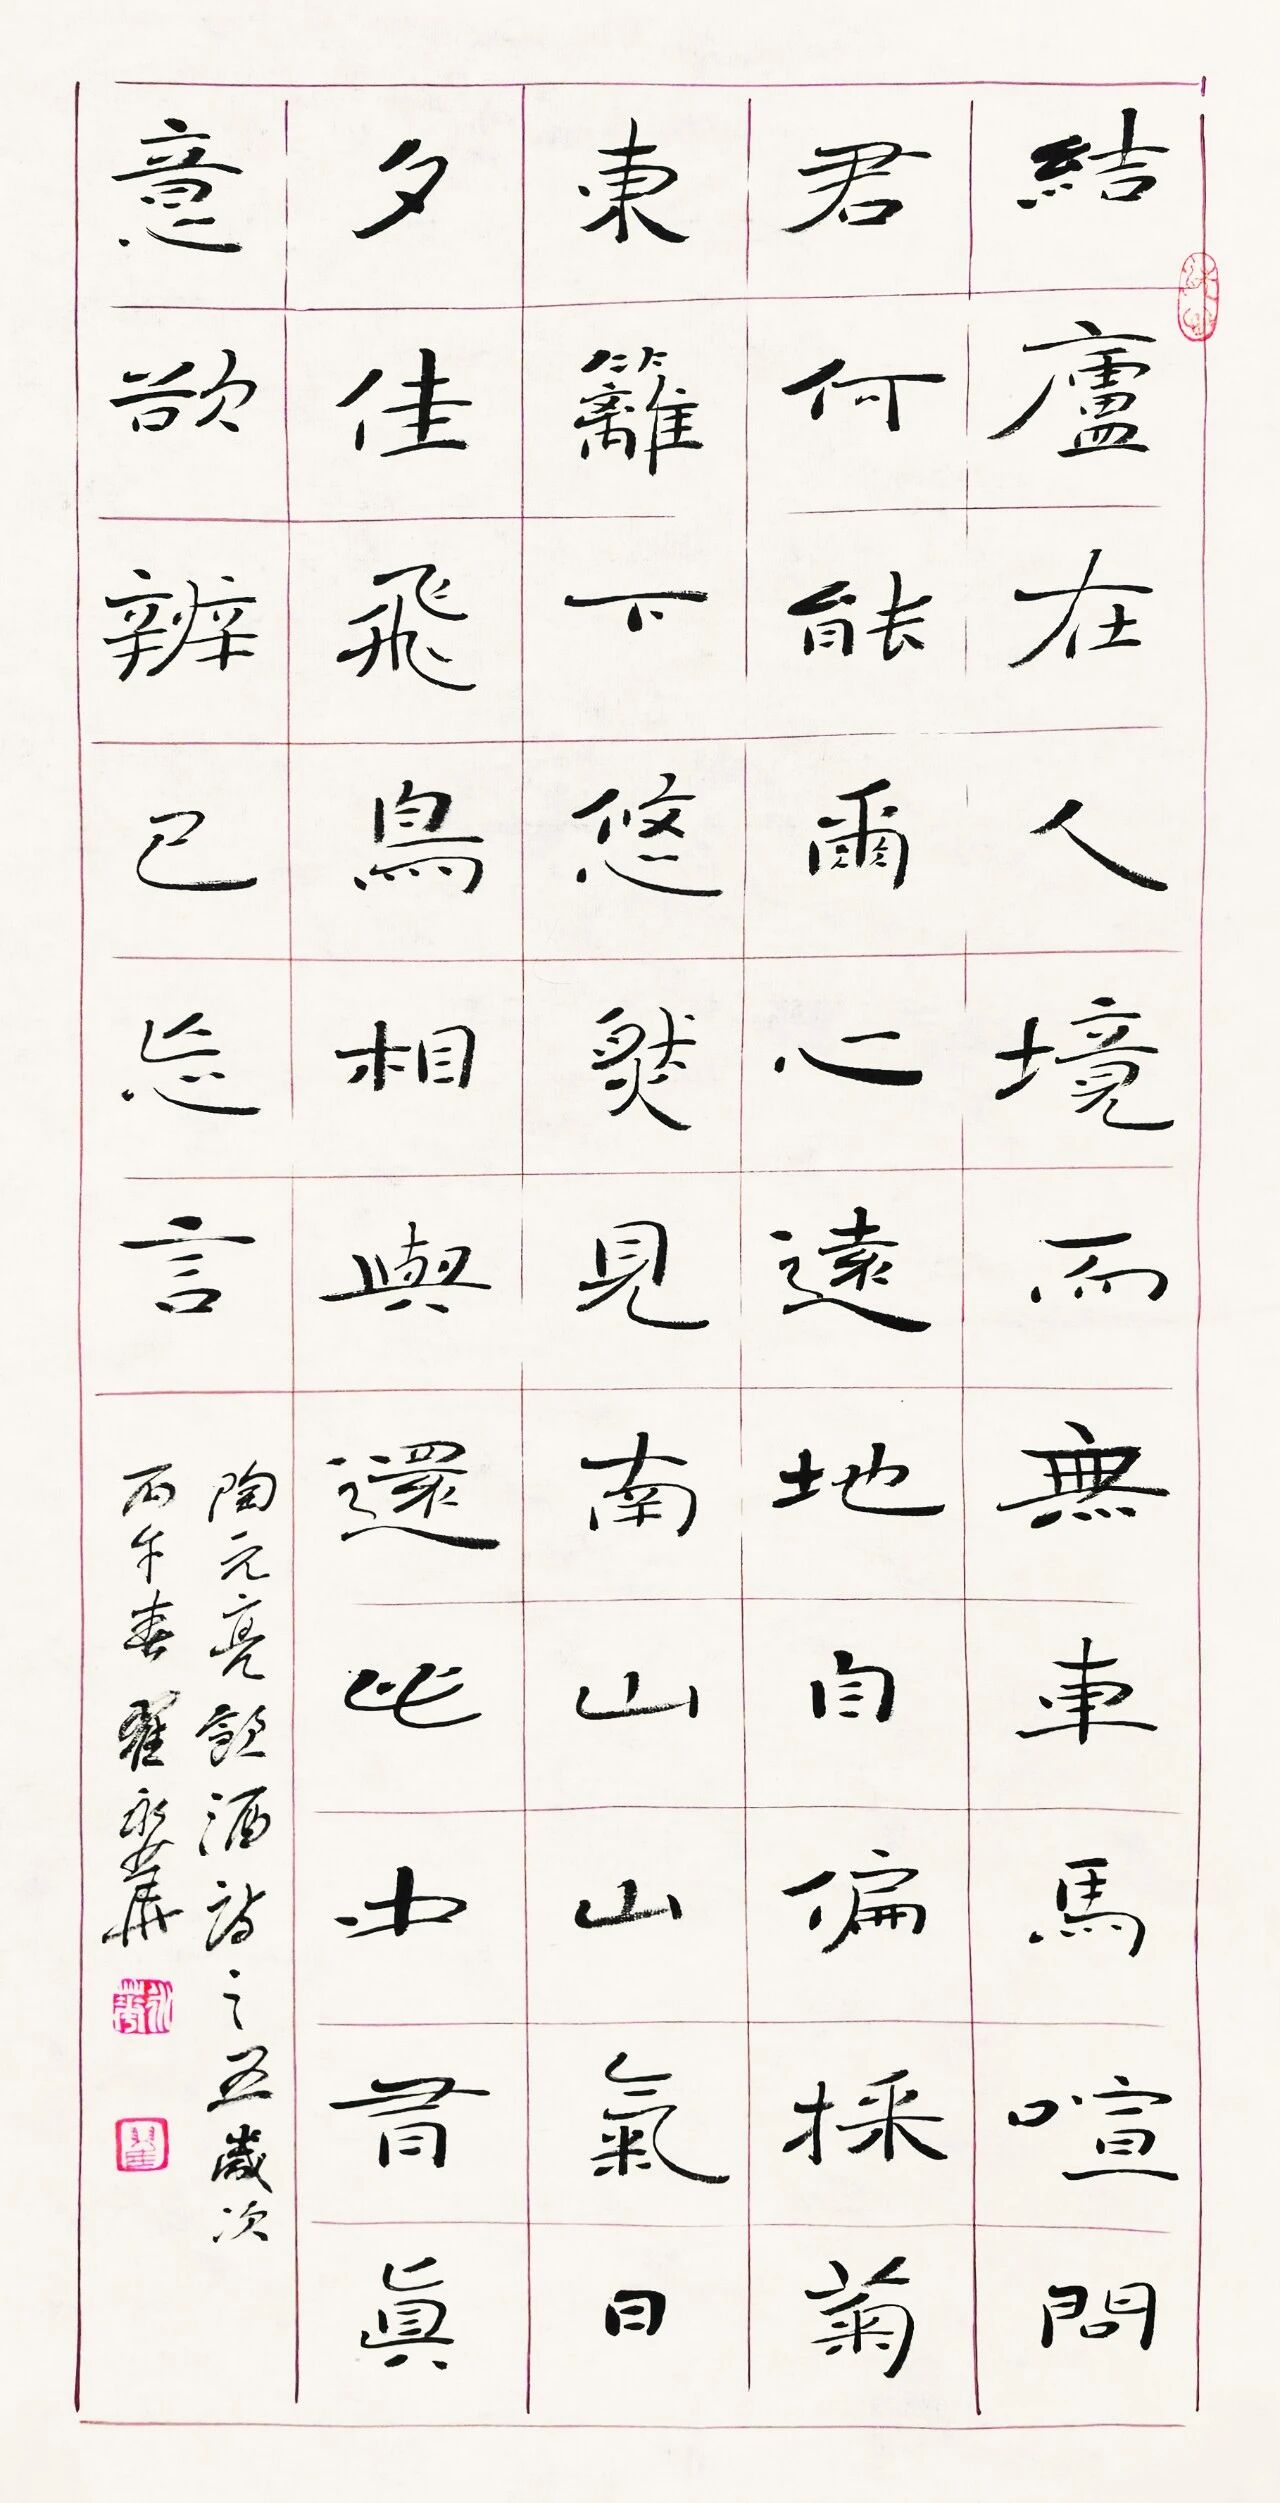 結廬在人境而無車馬喧問
君何能爾心遠地自偏採菊
東籬下悠然見南山山氣日
夕佳飛鳥相與還此中有眞
意欲辨已忘言
陶元亮飲酒詩之五歲次
丙午春翟永華
永華
翟